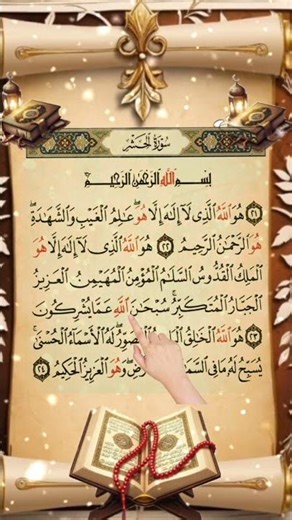 سُورَةُ الحَشْرِ
بِسْمِ اللَّهِ الرَّحْمَٰنِ الرَّحِيمِ
﴿٢١﴾ هُوَ اللَّهُ الَّذِي لَا إِلَٰهَ إِلَّا هُوَ عَالِمُ الْغَيْبِ وَالشَّهَادَةِ
هُوَ الرَّحْمَٰنُ الرَّحِيمُ ﴿٢٢﴾ هُوَ اللَّهُ الَّذِي لَا إِلَٰهَ إِلَّا هُوَ
الْمَلِكُ الْقُدُّوسُ السَّلَامُ الْمُؤْمِنُ الْمُهَيْمِنُ الْعَزِيزُ
الْجَبَّارُ الْمُتَكَبِّرُ سُبْحَانَ اللَّهِ عَمَّا يُشْرِكُونَ
﴿٢٣﴾ هُوَ اللَّهُ الْخَالِقُ الْمُصَوِّرُ لَهُ الْأَسْمَاءُ الْحُسْنَىٰ
يُسَبِّحُ لَهُ مَا فِي وَهُوَ الْعَزِيزُ الْحَكِيمُ ﴿٢٤﴾